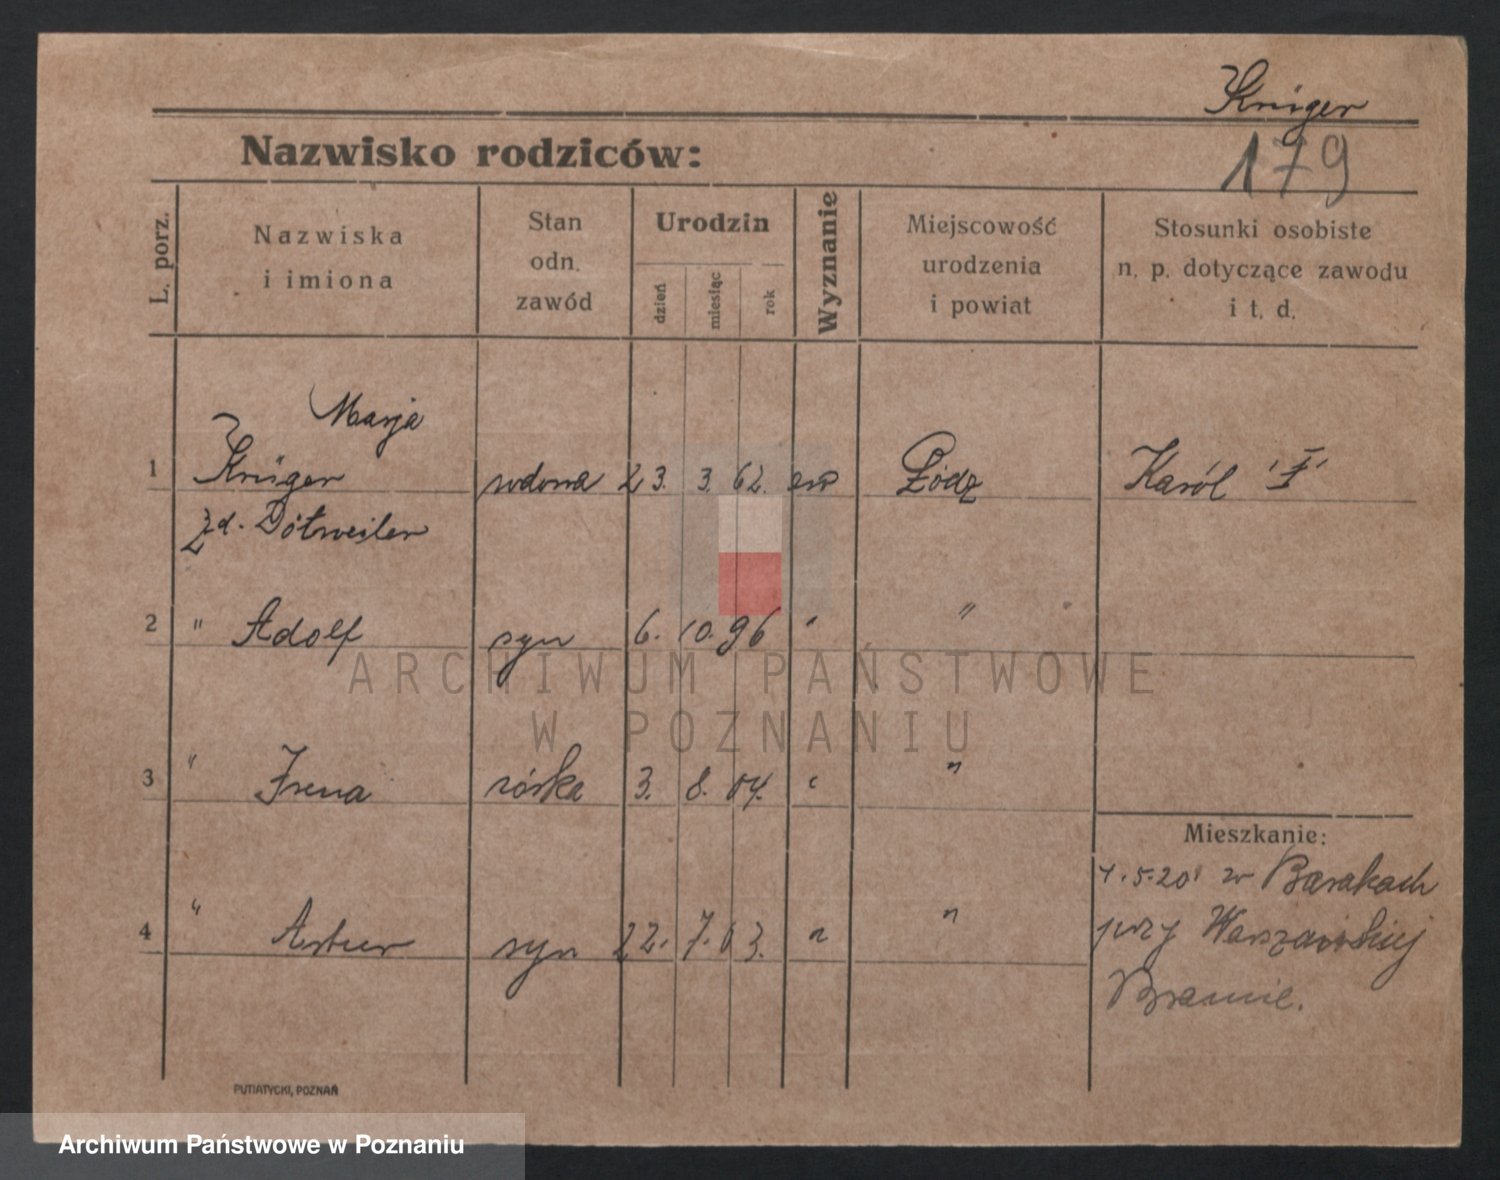 Krüger
179
Nazwisko rodziców:
L. porz.
Nazwiska
i imiona
Stan
odn.
zawód
Urodzin
dzień
miesiąc
rok
Wyznanie
Miejscowość
urodzenia
i powiat
Stosunki osobiste
n. p. dotyczące zawodu
i t. d.
Marja
1 Krüger wdowa 23. 3. 62. ew Łódz Karól
zd. Dótweiler
2 " Adolf syn 6. 10. 96 " "
3 " Irena córka 3. 8. 04. " "
Mieszkanie:
4 " Artur syn 22. 7. 03. " "
5.20 w Barakach
przy Warszawskiej
Bramie.
PUTIATYCKI, POZNAŃ
ARCHIWUM PAŃSTWOWE
W POZNANIU
Archiwum Państwowe w Poznaniu